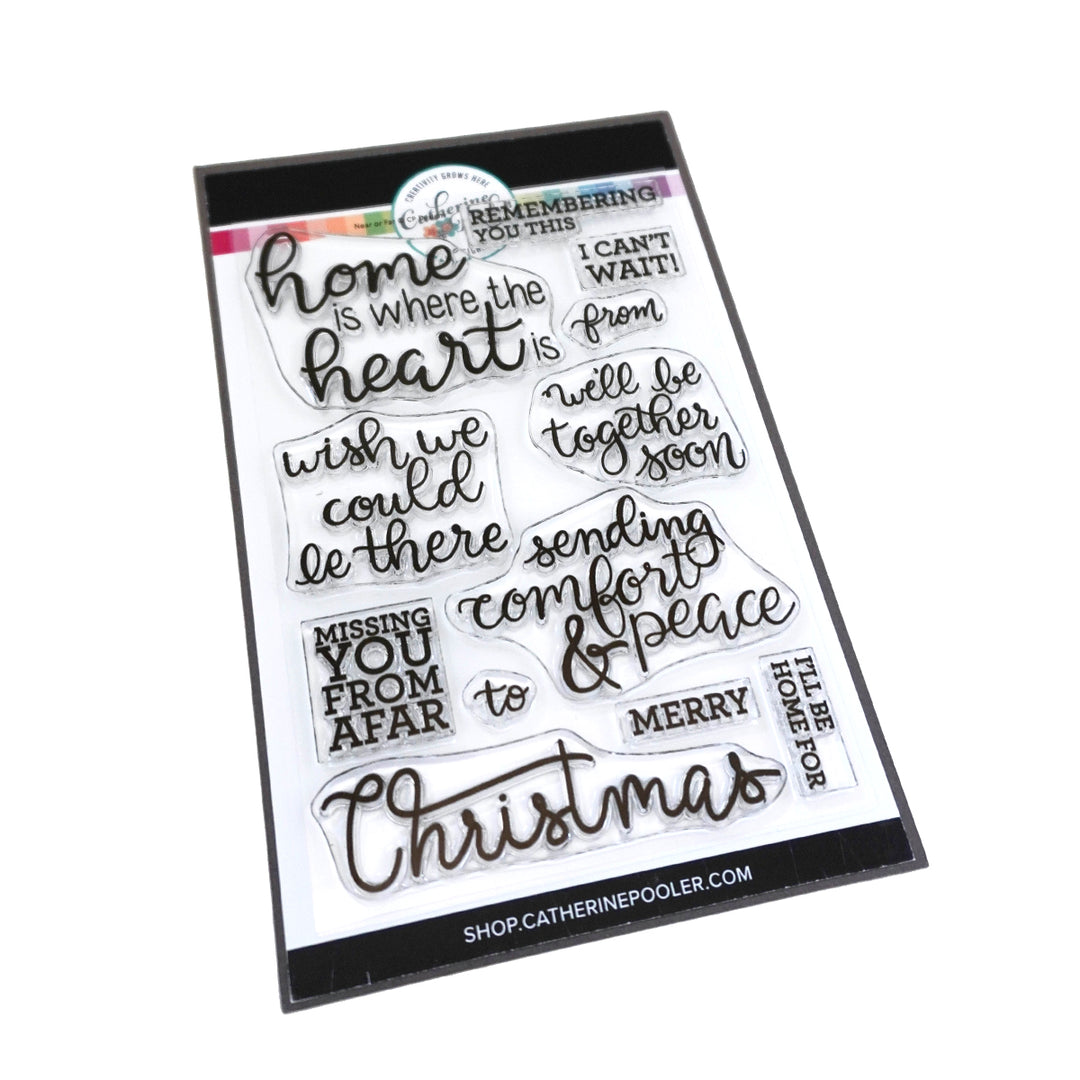 CREATIVITY GROWS HERE
Catherine
Near or Far
REMEMBERING
YOU THIS
I CAN'T
WAIT!
home
is where the
heart is
from
we'll be
together
soon
wish we
could
be there
sending
comfort
& peace
MISSING
YOU
FROM
AFAR
to
MERRY
I'LL BE
HOME FOR
Christmas
SHOP.CATHERINEPOOLER.COM